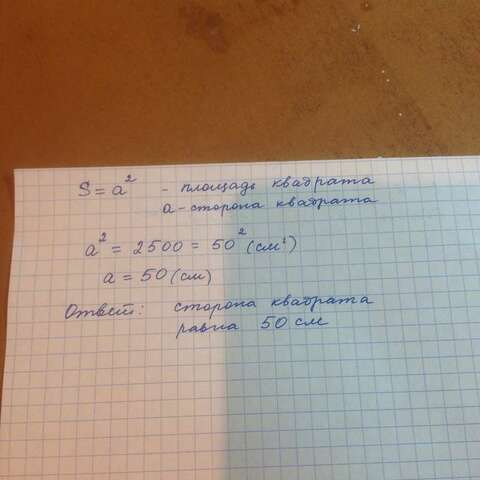 S = a² - площадь квадрата
a - сторона квадрата
a² = 2500 = 50² (см²)
a = 50 (см)
Ответ: сторона квадрата
равна 50 см